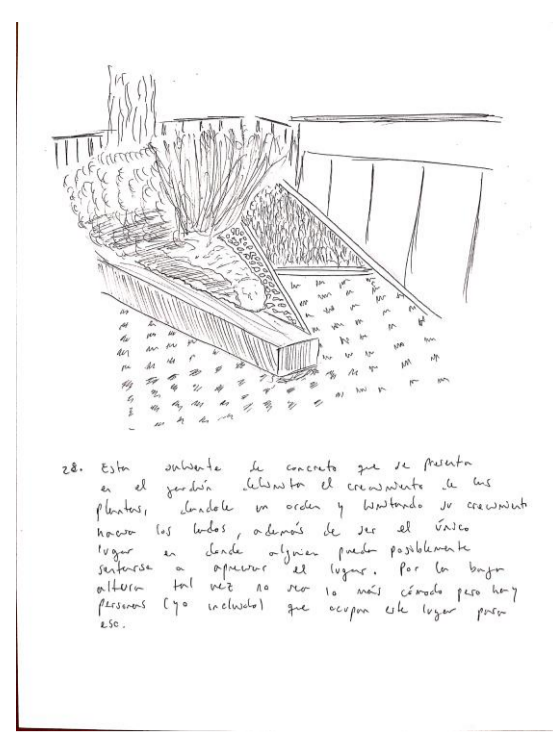 28. Esta saliente de concreto que se presenta
en el jardín delimita el crecimiento de las
plantas, dandole un orden y limitando su crecimiento
hacia los lados, además de ser el único
lugar en donde alguien pueda posiblemente
sentarse a apreciar el lugar. Por la baja
altura tal vez no sea lo más cómodo pero hay
personas (yo incluido) que ocupan este lugar para
eso.